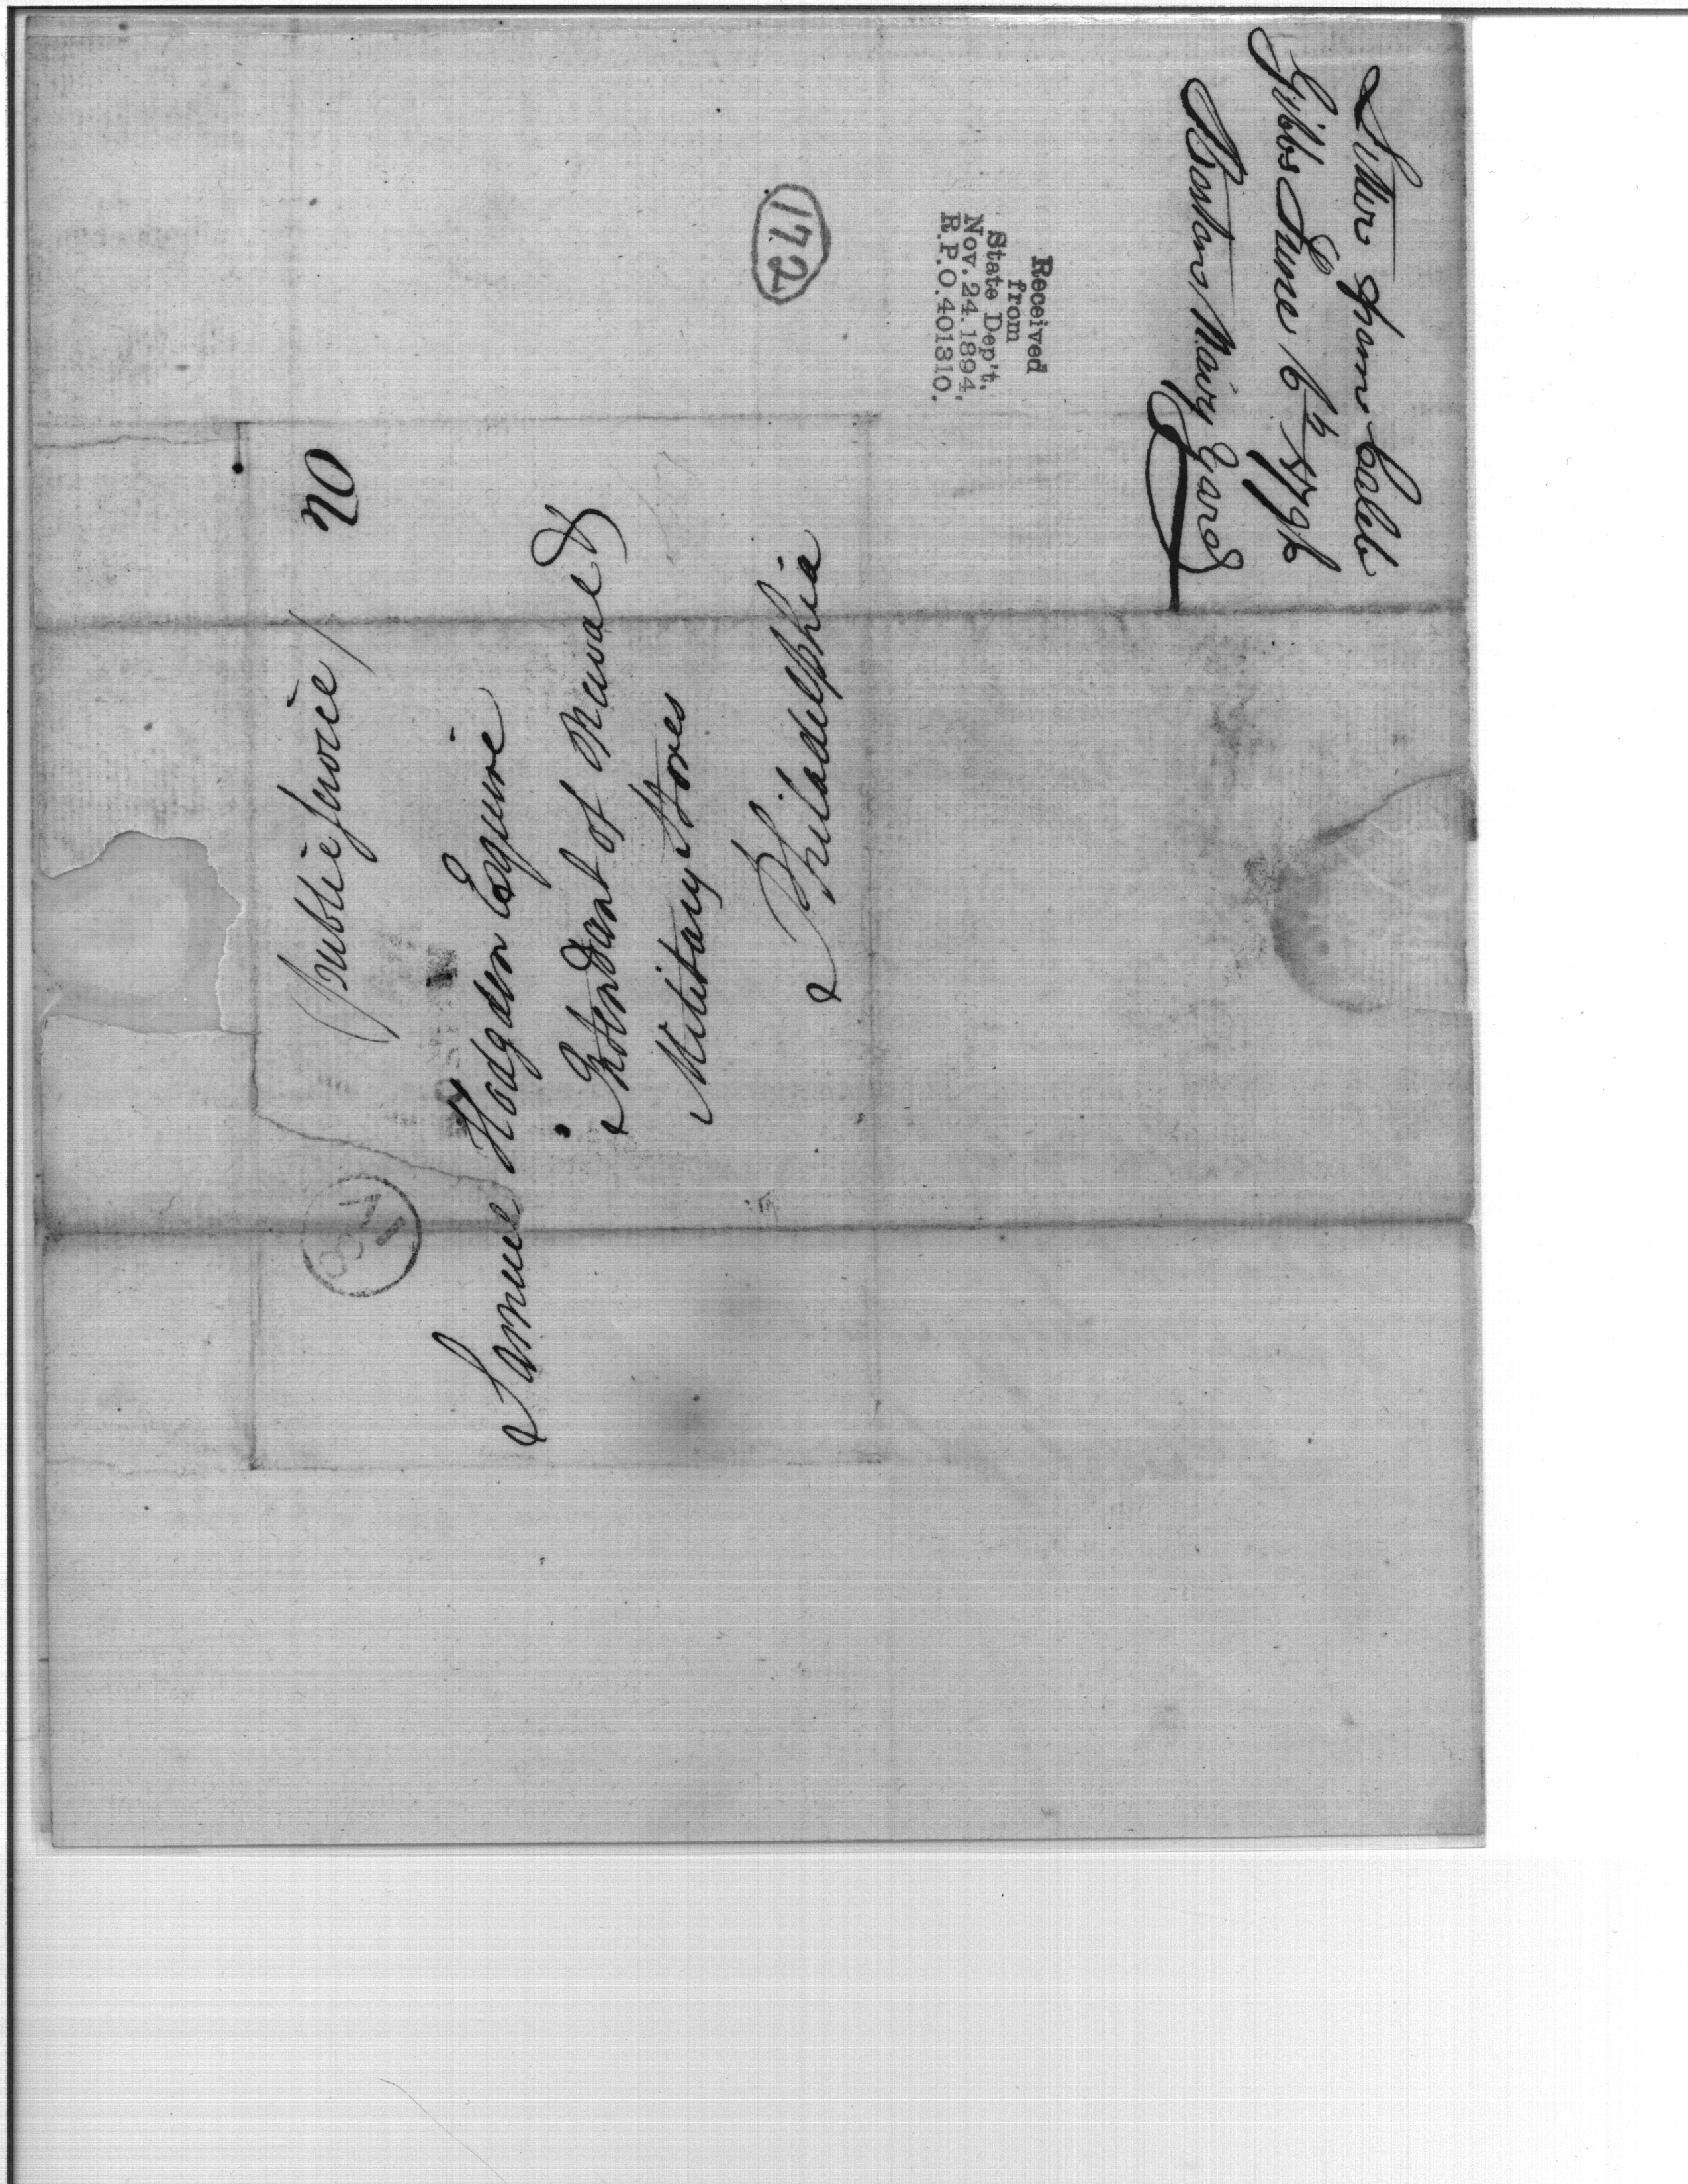 Letter from Caleb
Gibbs June 6th 1796
Boston Navy Yard
Received
from
State Dep't.
Nov. 24. 1894.
R.P.O. 401310.
172
20
(public service)
Samuel Hodgden Esquire
Intendant of Naval &
Military Stores
Philadelphia